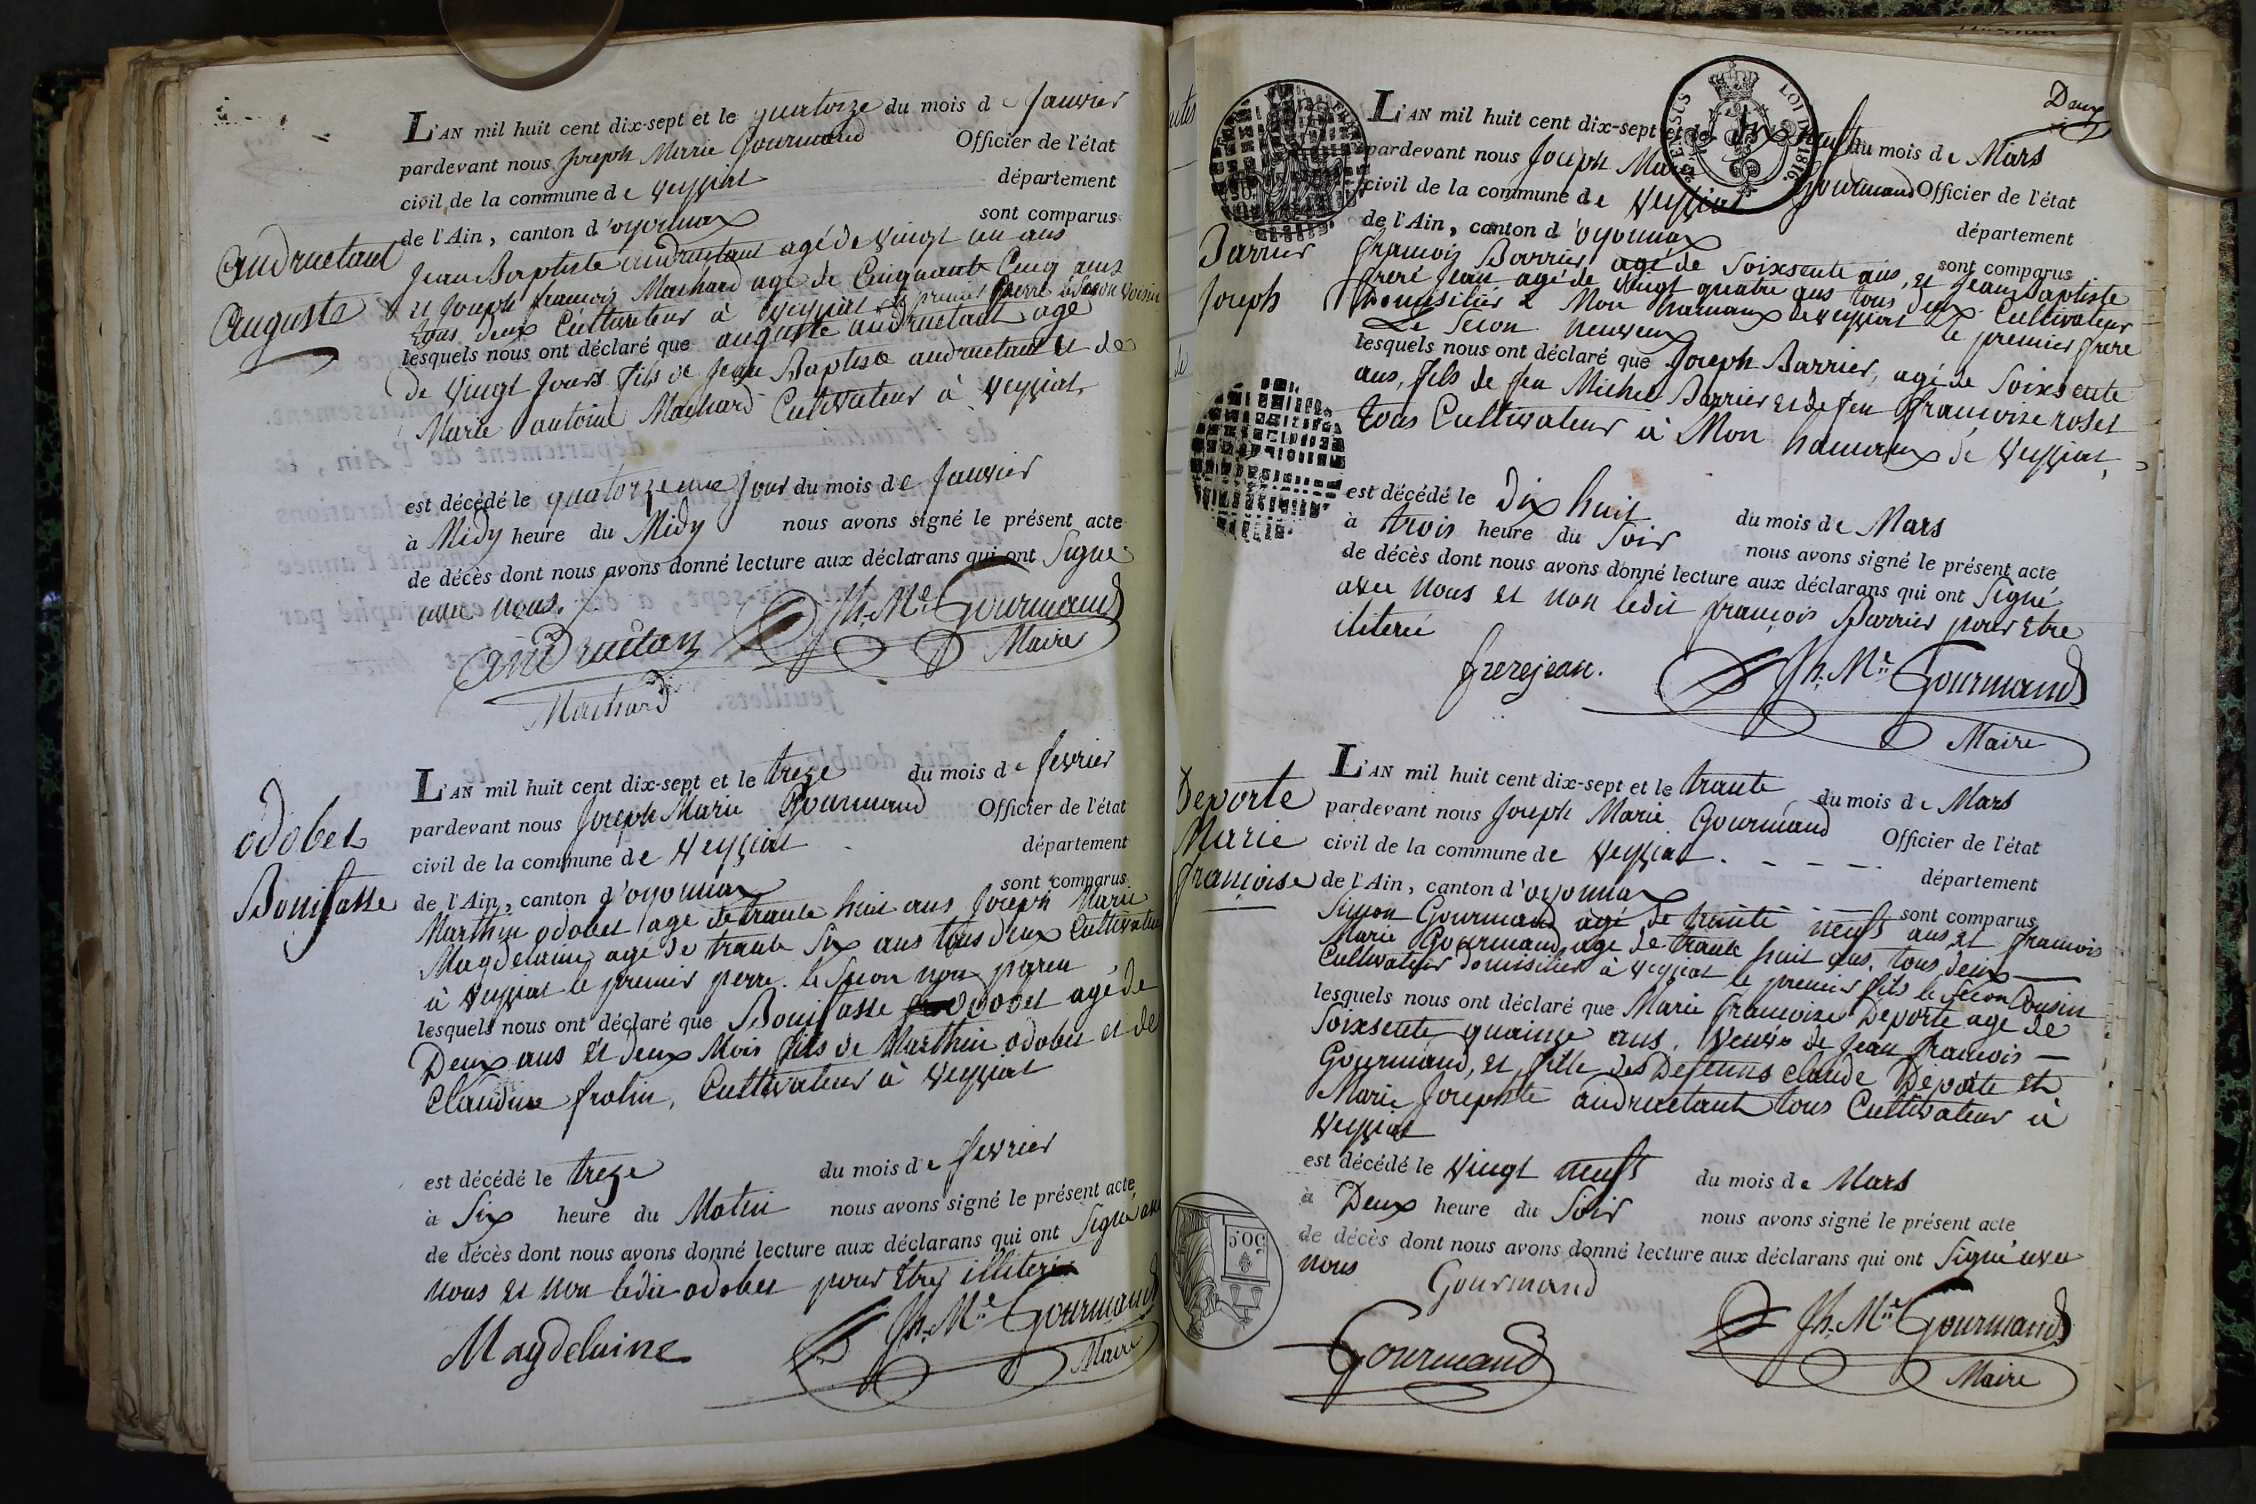 Andruetant
Auguste
L'AN mil huit cent dix-sept et le quatorze du mois de Janvier
pardevant nous Joseph Marie Gourmand Officier de l'état
civil de la commune de Veyziat département
de l'Ain, canton d'oyonnax sont comparus
Jean Baptiste andruetant agé de vingt un ans
et Joseph francois Machard age de Cinquante Cinq ans
tous deux Cultivateur à Veyziat le premier perre le secon voisin
lesquels nous ont déclaré que auguste andruetant age
de vingt Jours fils de Jean Baptiste andruetant et de
Marie antoine Machard Cultivateur à Veyziat
est décédé le quatorzeme Jour du mois de Janvier
à Midy heure du Midy nous avons signé le présent acte
de décès dont nous avons donné lecture aux déclarans qui ont Signé
avec nous.
Andruetan Jh. Mie Gourmand
Maire
Machard
odobet
Bonifasse
L'AN mil huit cent dix-sept et le treze du mois de fevrier
pardevant nous Joseph Marie Gourmand Officier de l'état
civil de la commune de Veyziat département
de l'Ain, canton d'oyonnax sont comparus
Marthin odobet age de trante huit ans Joseph Marie
Magdelaine agé de trante Six ans tous deux Cultivateur
à Veyziat le premier perre. le Secon non paren
lesquels nous ont déclaré que Bonifasse odobet agé de
Deux ans et deux Mois fils de Marthin odobet et de
Claudine frolin, Cultivateur à Veyziat
est décédé le treze du mois de fevrier
à Six heure du Matin nous avons signé le présent acte
de décès dont nous avons donné lecture aux déclarans qui ont Signé avec
nous et non ledit odobet pour Etre illiteré
Magdelaine Jh. Mie Gourmand
Maire
Deux
Barrier
Joseph
L'AN mil huit cent dix-sept et le dix neuf du mois de Mars
pardevant nous Joseph Marie Gourmand Officier de l'état
civil de la commune de Veyziat département
de l'Ain, canton d'oyonnax sont comparus
francois Barrier agé de Soixsente ans, et Jean Baptiste
frere Jean agé de vingt quatre ans tous deux Cultivateur
Domisilier à Mon hamaux de veyziat le premier frere
Le Secon neuveux
lesquels nous ont déclaré que Joseph Barrier, agé de Soixsente
ans, fils de feu Michel Barrier et de feu françoise roset
tous Cultivateur à Mon hamaux de Veyziat,
est décédé le Dix huit du mois de Mars
à trois heure du Soir nous avons signé le présent acte
de décès dont nous avons donné lecture aux déclarans qui ont Signé
avec nous et non ledit françois Barrier pour Etre
iliteré
frerejean. Jh. Mie Gourmand
Maire
Deporte
Marie
françoise
L'AN mil huit cent dix-sept et le trante du mois de Mars
pardevant nous Joseph Marie Gourmand Officier de l'état
civil de la commune de Veyziat département
de l'Ain, canton d'oyonnax sont comparus
Simon Gourmand agé de trante neuf ans et francois
Marie Gourmand age de trante huit ans, tous deux
Cultivateur domisilier à veyziat le premier fils le Secon Cousin
lesquels nous ont déclaré que Marie francoise Deporte age de
Soixsente quainze ans, veuve de Jean francois
Gourmand, et fille des Defeuns claude Deporte et
Marie Josephte andruetant tous Cultivateur à
Veyziat
est décédé le vingt neuf du mois de Mars
à Deux heure du Soir nous avons signé le présent acte
de décès dont nous avons donné lecture aux déclarans qui ont Signé avec
nous
Gourmand
Gourmand Jh. Mie Gourmand
Maire